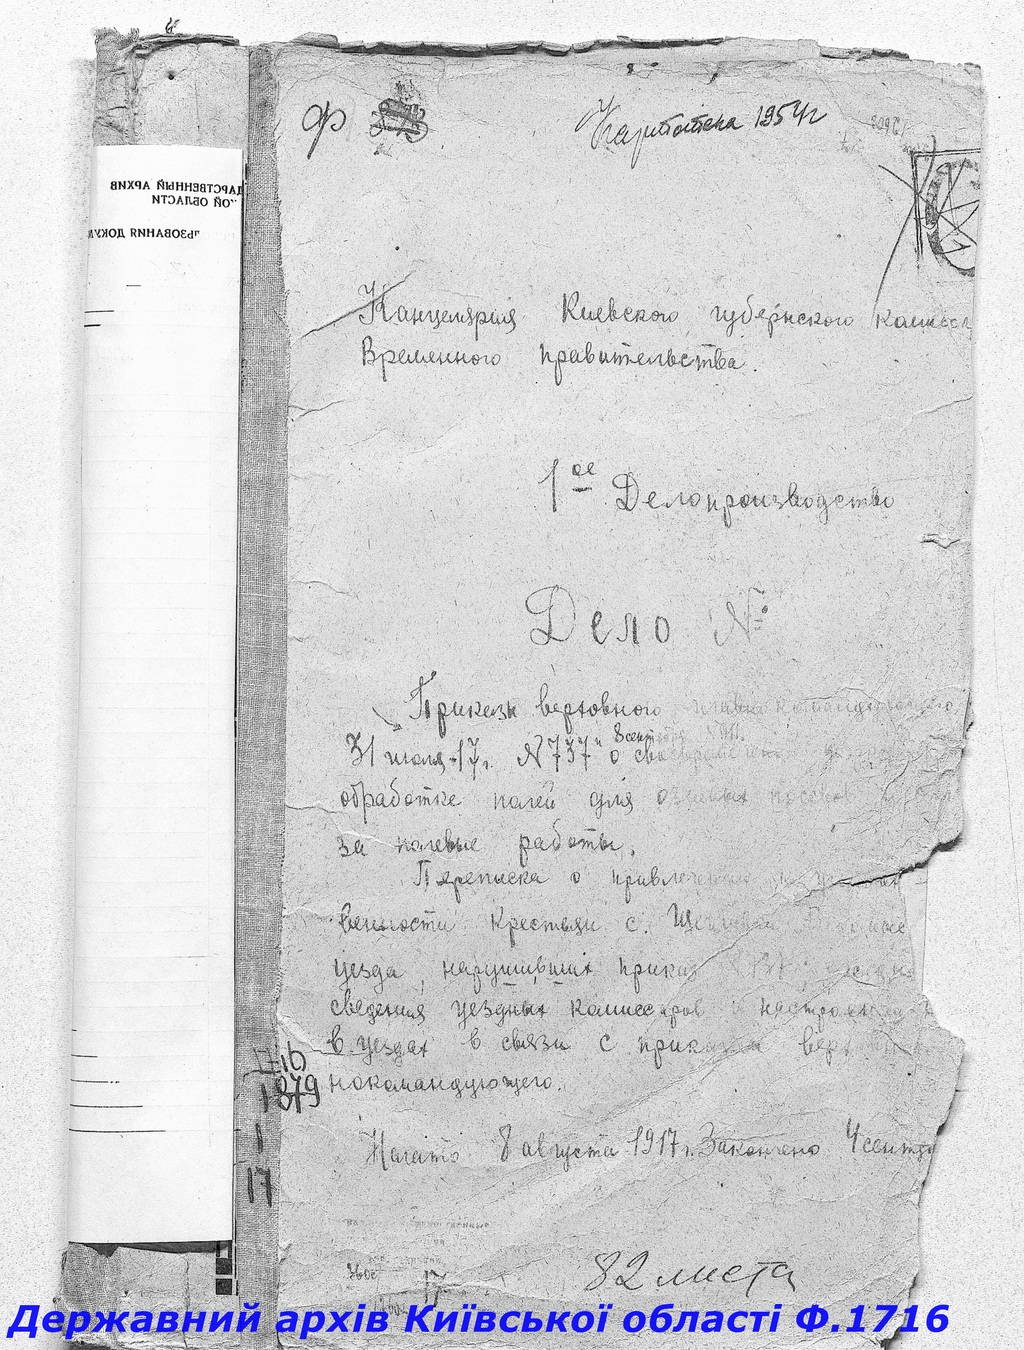 Ф
Картотека 1954 г
ДАРСТВЕННЫЙ АРХИВ
ОЙ ОБЛАСТИ
ЬЗОВАНИЯ ДОКУМ
Канцелярия Киевского губернского комисса
Временного правительства.
1ое Делопроизводство
Дело №
Приказы верховного главнокомандующего
8 сентября
31 июля-17 г. N 737 и о своевременной
обработке полей для озимых посевов
за полевые работы.
Переписка о привлечении
венности крестьян с.
уезда, нарушивших приказ
сведения уездных комиссаров о настроении
в уездах в связи с приказом верх
нокомандующего.
Начато 8 августа 1917 г. Закончено 4 сентя
1716
1
879
1
17
82 листа
Державний архів Київської області Ф.1716